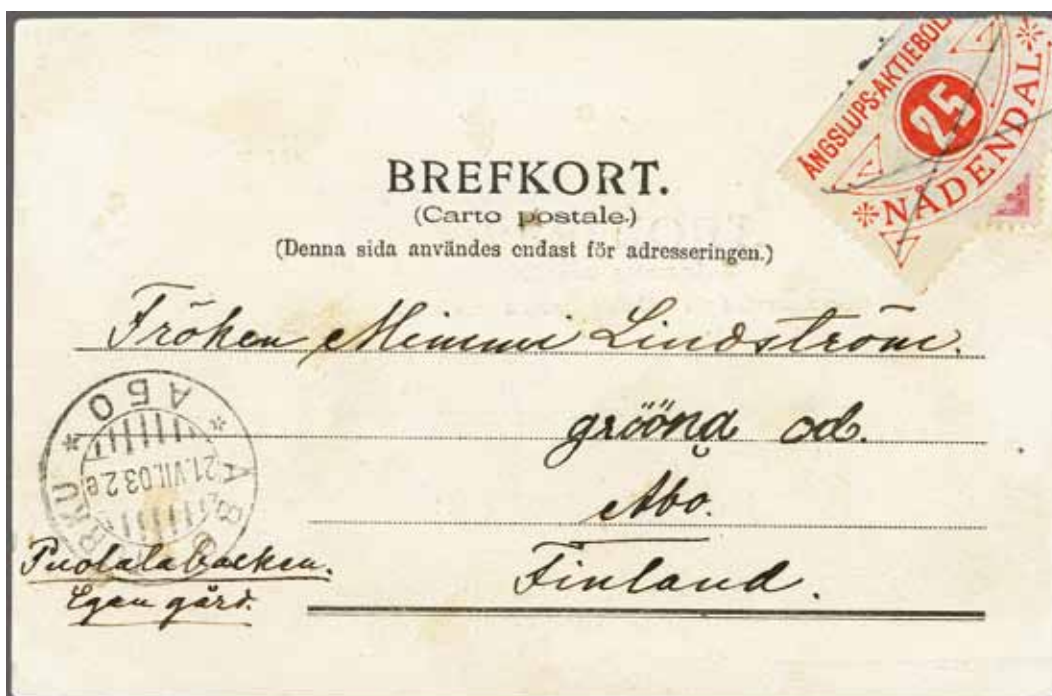 ÅNGSLUPS-AKTIEBOL
25
* NÅDENDAL *
BREFKORT.
(Carto postale.)
(Denna sida användes endast för adresseringen.)
Fröken Mimmi Lindström.
Åbo.
Finland.
ÅBO * АБО * TURKU
21.VII.03 2e
Puolalabacken.
Egen gård.